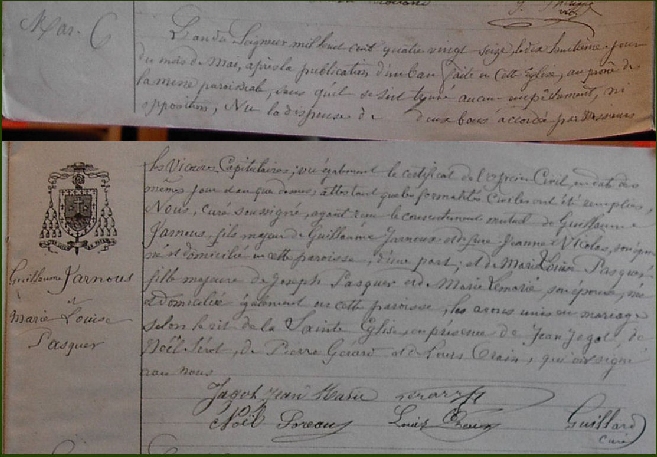 Mar. 6
L'an du Seigneur mil huit cent quatre vingt-seize, le dix huitième jour
du mois de Mai, après la publication d'un ban faite en cette église, au prône de
la messe paroissiale, sans qu'il se soit trouvé aucun empêchement, ni
opposition, Vu la dispense de deux bans accordée par Messieurs
les Vicaires Capitulaires; vu également le certificat de l'officier Civil, en date des
mêmes jour et an que dessus, attestant que les formalités Civiles ont été remplies,
Nous, curé soussigné, ayant reçu le consentement mutuel de Guillaume
Jarnous, fils majeur de Guillaume Jarnous et de Jeanne Nicolas, son épouse
né et domicilié en cette paroisse, d'une part; et de Marie Louise Pasquer,
fille majeure de Joseph Pasquer et de Marie son épouse, née
et domiciliée également en cette paroisse, les avons unis en mariage
selon le rit de la Sainte Église en présence de Jean Jégot, de
Noël de Pierre Gérard et de Louis qui ont signé
avec nous
Guillaume Jarnous
et
Marie Louise
Pasquer
Jagot Jean Marie
Noël Louis Guillard
curé